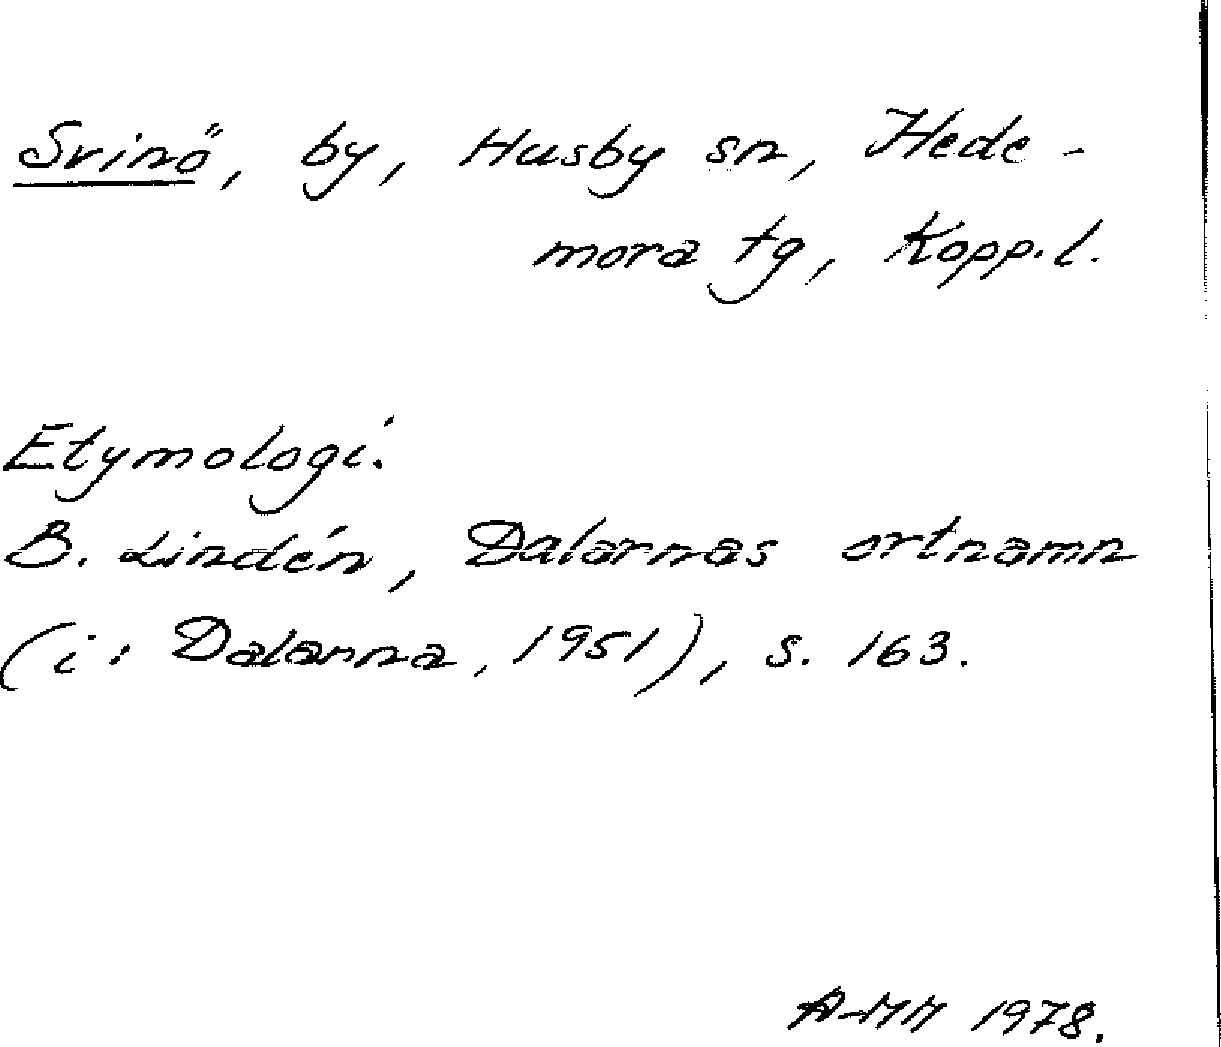 Svinö, by, Husby sn, Hede-
mora tg, Kopp.l.
Etymologi:
B. Lindén, Dalarnas ortnamn
(i: Dalarna, 1951), s. 163.
A-MM 1978.